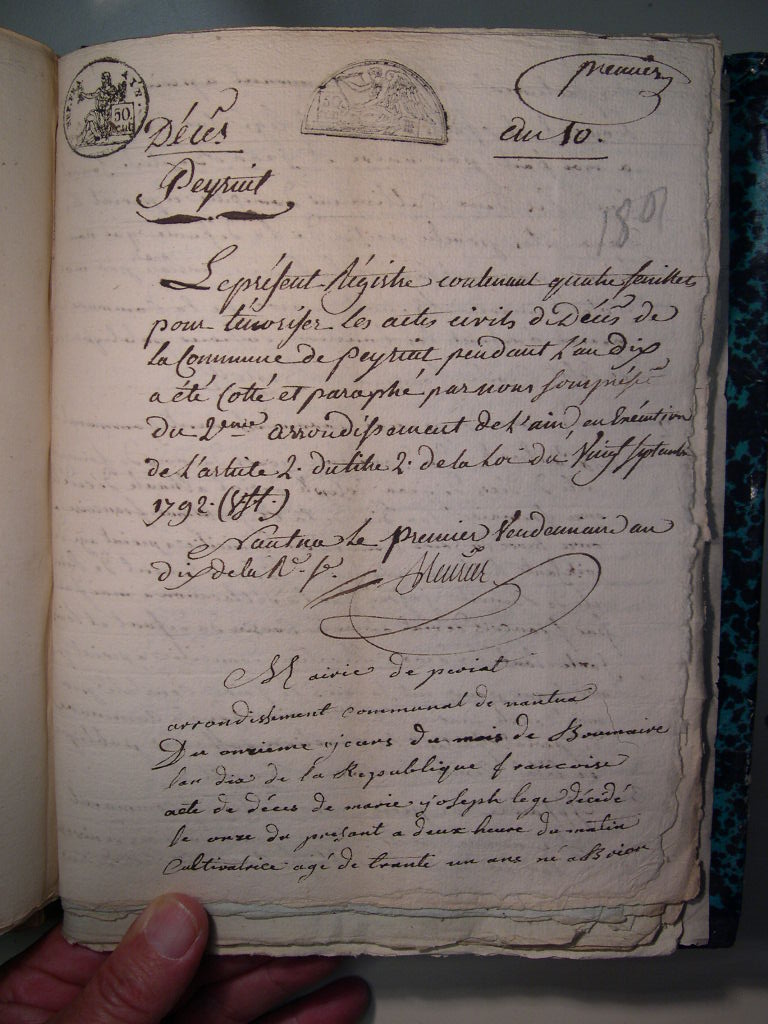 premier
50
Décès
an 10.
Peyriat
1801
Le présent Régistre contenant quatre feuillets
pour ténoriser les actes civils de Décès de
la Commune de Peyriat pendant l'an dix
a été Cotté et paraphé par nous
du 2eme arrondissement de l'ain, en Exécution
de l'article 2. du titre 2. de la Loi du Vingt septembre
1792.
Nantua le premier Vendemiaire an
dix de la Re. fe.
Mairie de periat
arrondissement communal de nantua
Du onzieme jours du mois de Brumaire
lan dix de la Republique francoise
acte de déces de marie joseph lege décédé
le onze du presant a deux heure du matin
Cultivatrice agé de trante un ans né a